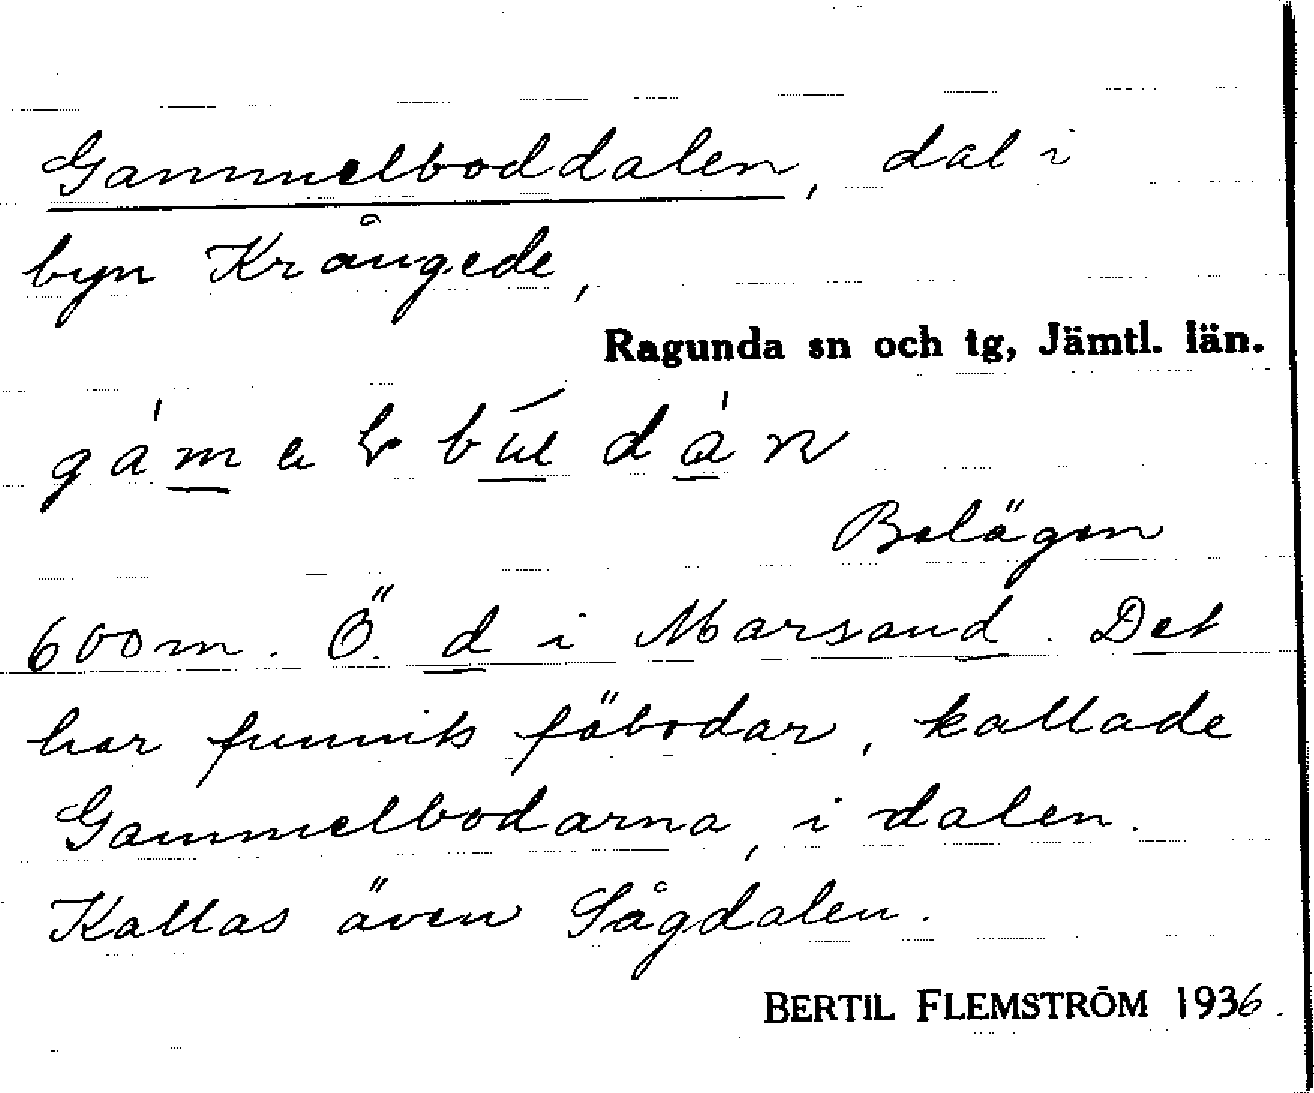 Gammelboddalen, dal i
byn Krångede,
Ragunda sn och tg, Jämtl. län.
Belägen
600 m. Ö. d i Marsand. Det
har funnits fäbodar, kallade
Gammelbodarna, i dalen.
Kallas även Sågdalen.
BERTIL FLEMSTRÖM 1936.